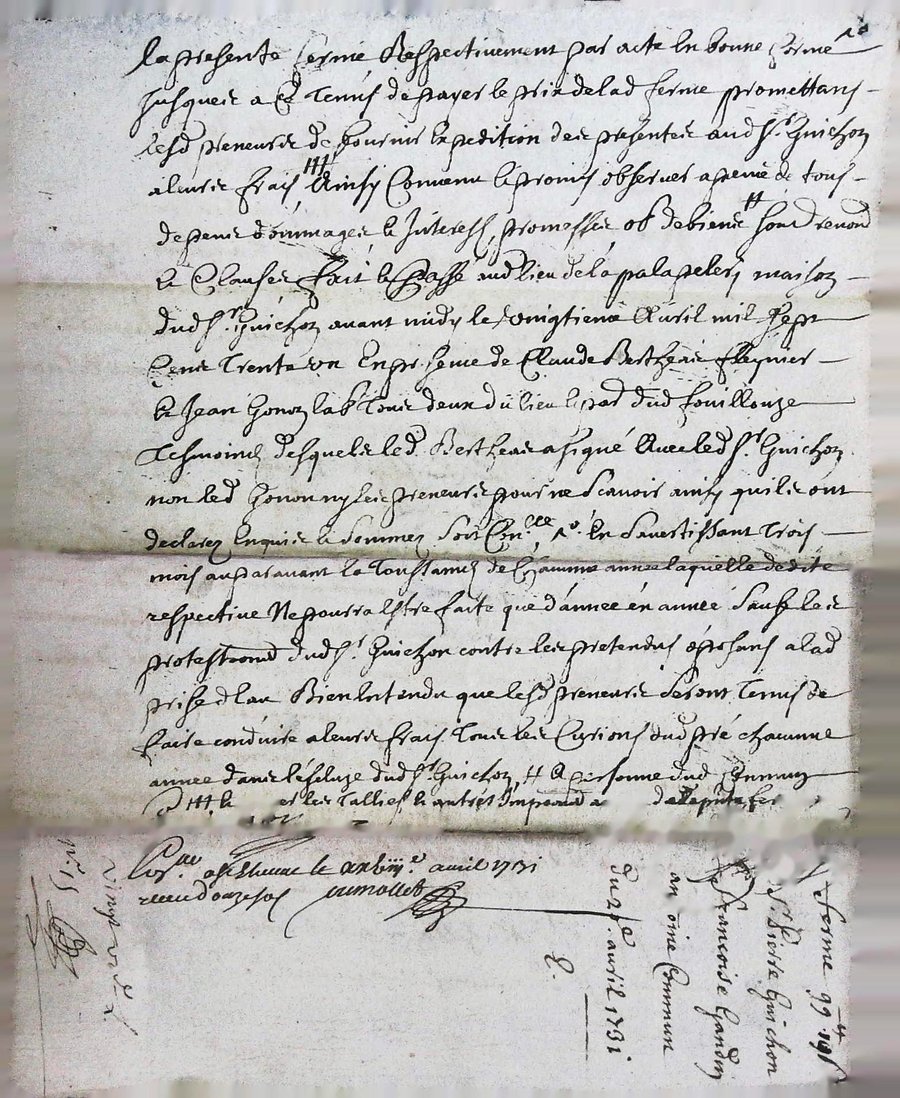 la presente ferme Respectivement par acte En bonne forme 1°
jusques a ce Tenus de payer le prix de lad ferme promettans
lesd preneurs de fournir Expedition des presentes aud Sr. Guichon
a leurs frais ### Ainsy Convenu & promis observer a peine de tous
depens dommages & Interests, promesses ob de biens # soud renond
& Clauses fait & Passé aud lieu de la palapelery maison
dud Sr. Guichon avant midy le vingtieme Avril mil sept
Cens Trente un En presence de Claude Bertheas
& Jean Honon lab Tous deux du lieu & par dud fouillouze
Tesmoins desquels led. Bertheas a signé Avec led Sr. Guichon
non led honon ny les preneurs pour ne scavoir ainsy qu'ils ont
declarez Enquis & Sommez Soit Con.lle, 1° En S'avertissant Trois
mois auparavant la Toussaines de Chacune annee laquelle dedite
respective Ne pourra Estre faite que d'annee en année Sauf les
protestaond dud Sr. Guichon contre les pretendus oposans a lad
prise d'Eau Bien Entendu que lesd preneurs Seront Tenus de
faire conduire a leurs frais Tous les Curions dud pré chacune
annee dans l'Ecluze dud Sr. Guichon # A personne dud Commun
### & les Tallies & autres Impond
a St Etienne le avril 1731
receu douze sols
du 20e. avril 1731
ferme 99
Sr Pierre Guichon
francoise Gandin
antoine Commun